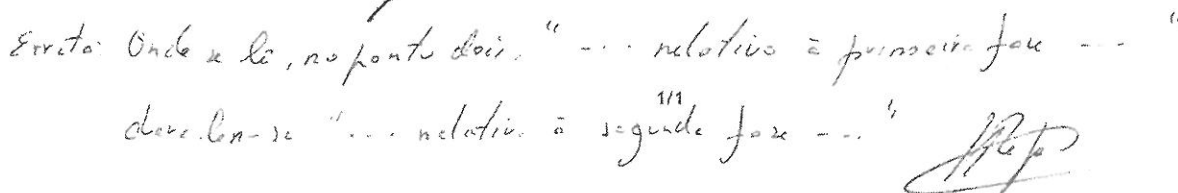 Errata: Onde se lê, no ponto dois, "... relativo à primeira fase ..."
1/1
deve ler-se "... relativo à segunda fase ..."